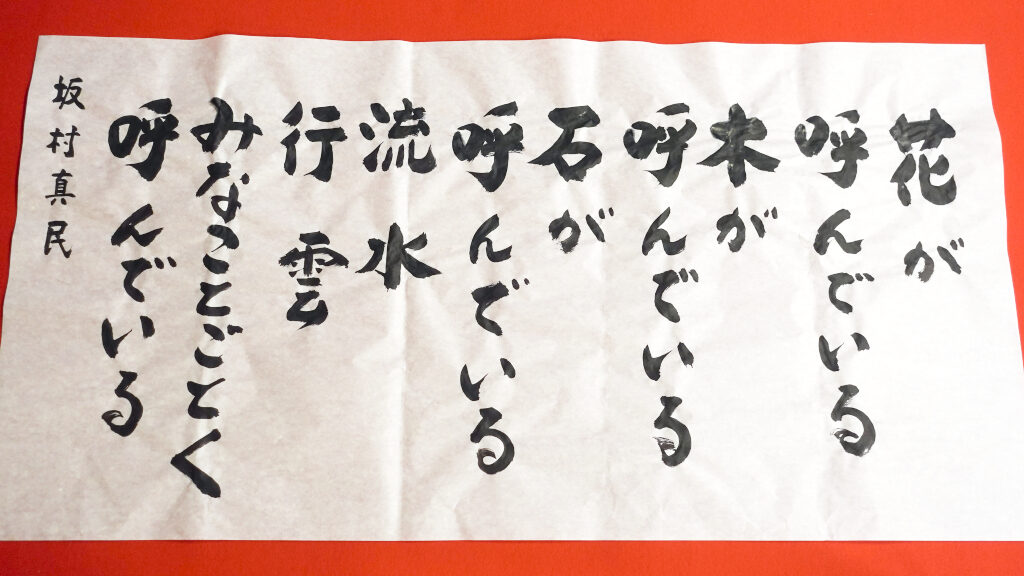 花が
呼んでいる
木が
呼んでいる
石が
呼んでいる
流水
行雲
みなことごとく
呼んでいる
坂村真民